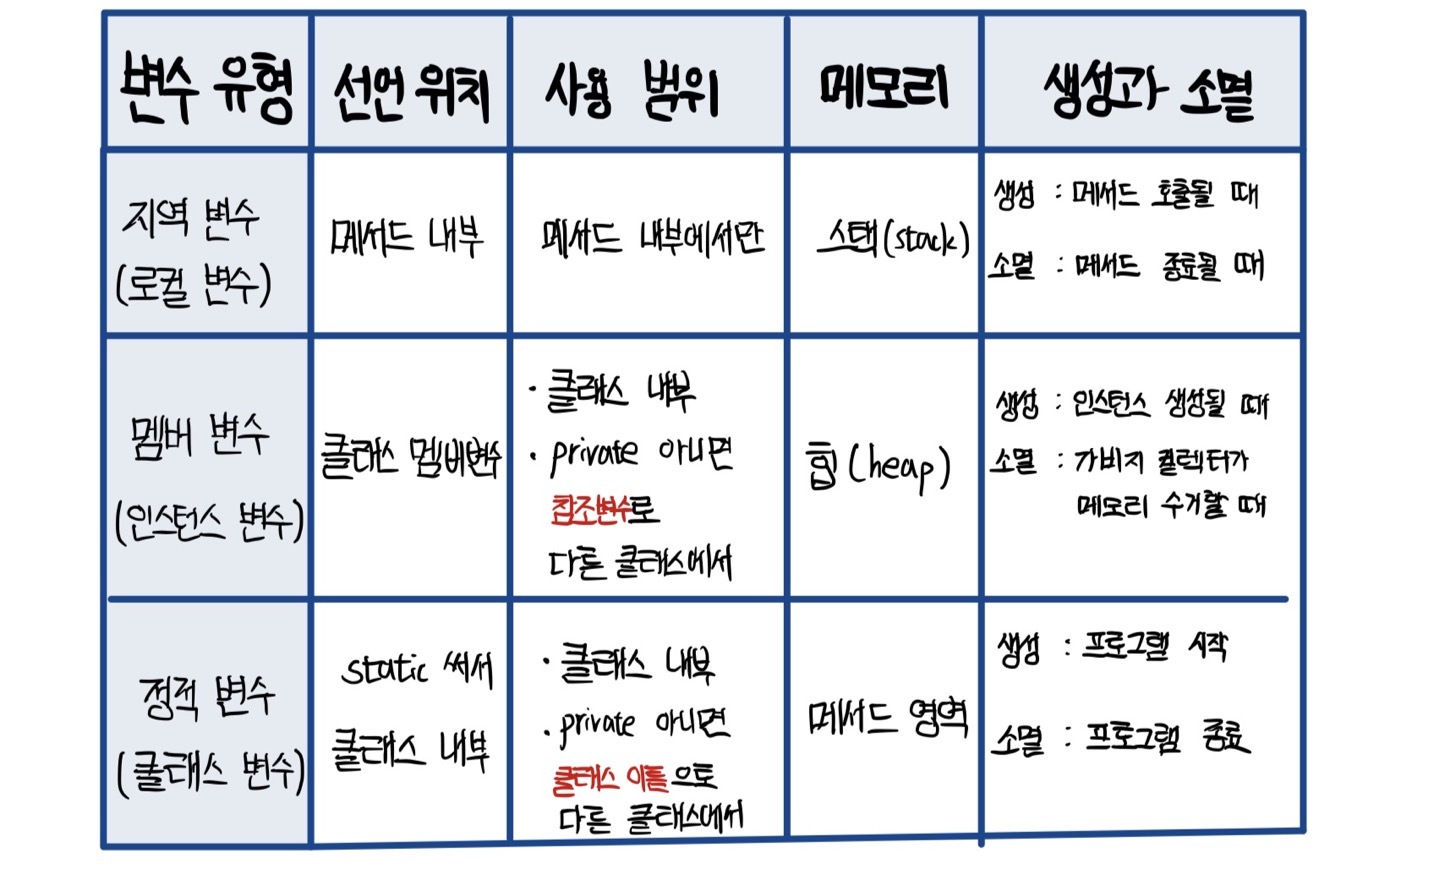 변수 유형 선언 위치 사용 범위 메모리 생성과 소멸
지역 변수
(로컬 변수)
메서드 내부
메서드 내부에서만
스택(stack)
생성 : 메서드 호출될 때
소멸 : 메서드 종료될 때
멤버 변수
(인스턴스 변수)
클래스 멤버변수
· 클래스 내부
· private 아니면
참조변수로
다른 클래스에서
힙(heap)
생성 : 인스턴스 생성될 때
소멸 : 가비지 컬렉터가
메모리 수거할 때
정적 변수
(클래스 변수)
static 써서
클래스 내부
· 클래스 내부
· private 아니면
클래스 이름으로
다른 클래스에서
메서드 영역
생성 : 프로그램 시작
소멸 : 프로그램 종료